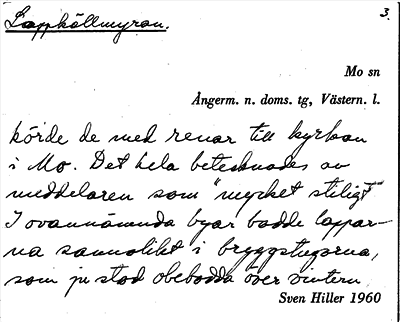 3.
Lappkällmyran.
Mo sn
Ångerm. n. doms. tg, Västern. l.
körde de med renar till kyrkan
i Mo. Det hela betecknades av
meddelaren som "mycket stiligt"
I ovannämnda byar bodde lappar-
na sannolikt i bryggstugorna,
som ju stod obebodda över vintern
Sven Hiller 1960